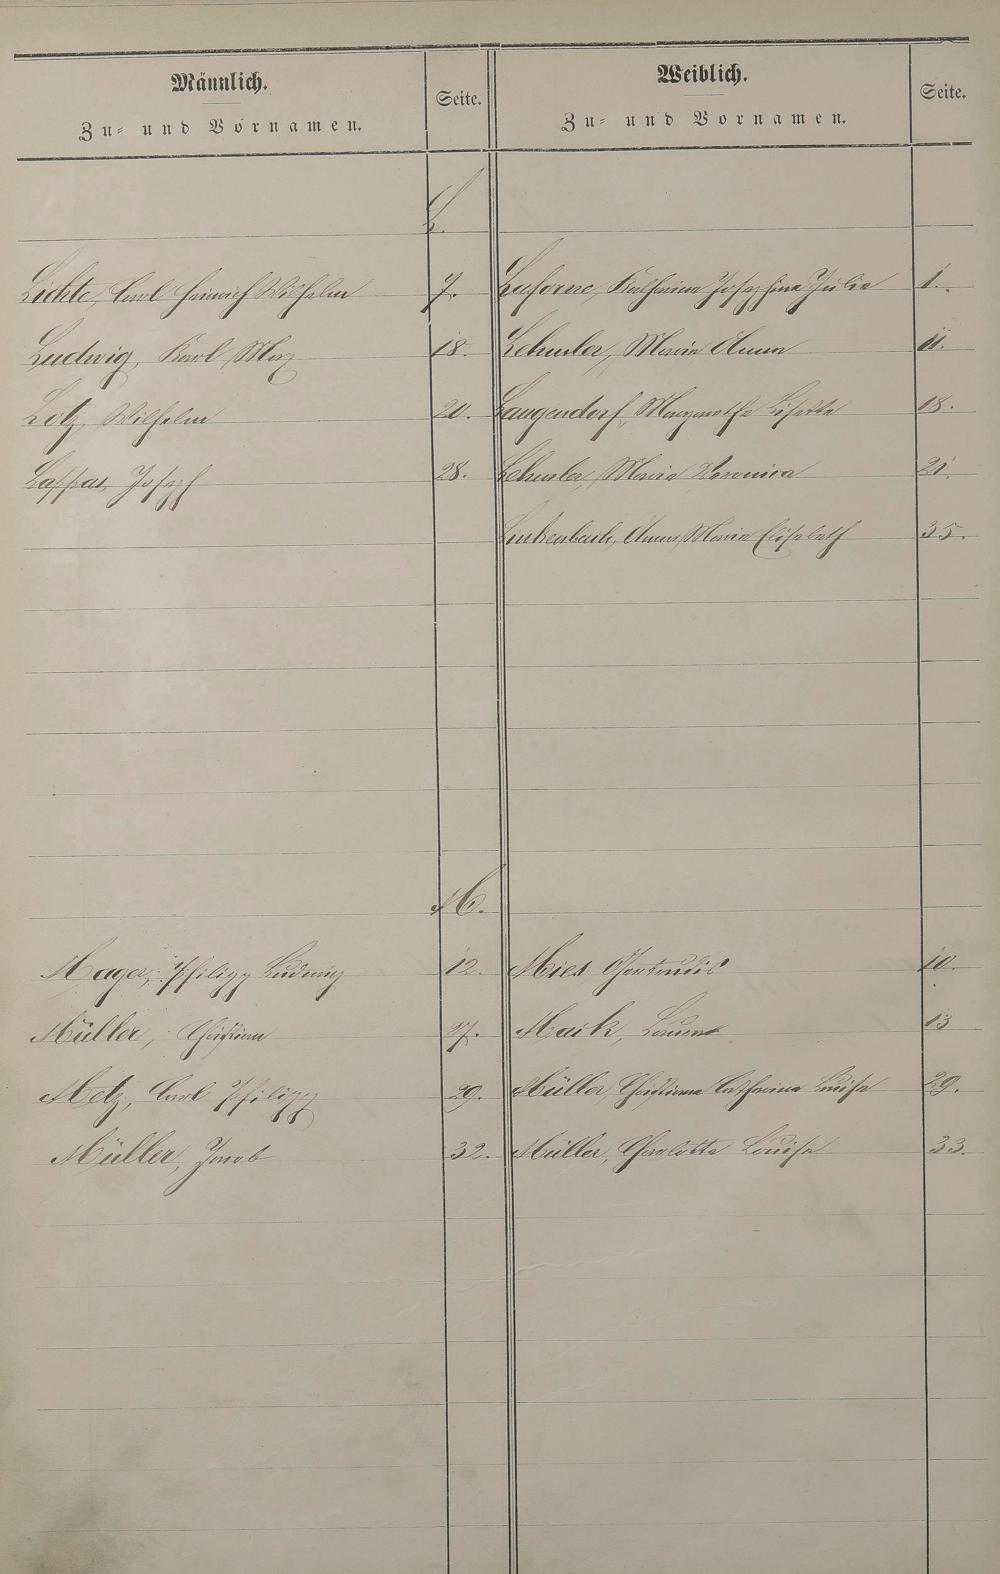 Männlich.
Zu- und Vornamen.
Seite.
Weiblich.
Zu- und Vornamen.
Seite.
L.
Lichte, Carl Heinrich Wilhelm 7. Laforne, Katharina Josephina Julia 1.
Ludwig, Karl Max 18. Lehmler, Maria Anna 11.
Lotz, Wilhelm 20. Langendorf, Margarethe Lisette 18.
Lassas, Joseph 28. Lehmler, Maria Veronica 21.
Linkenbach, Anna Maria Elisabeth 35.
M.
Mager, Philipp Ludwig 12. Mies Gertrudis 10.
Müller, Christian 27. Maik, 13
Metz, Carl Philipp 29. Müller, Christiane Catharina Luise 29.
Müller, Jacob 32. Müller, Charlotte Louise 33.